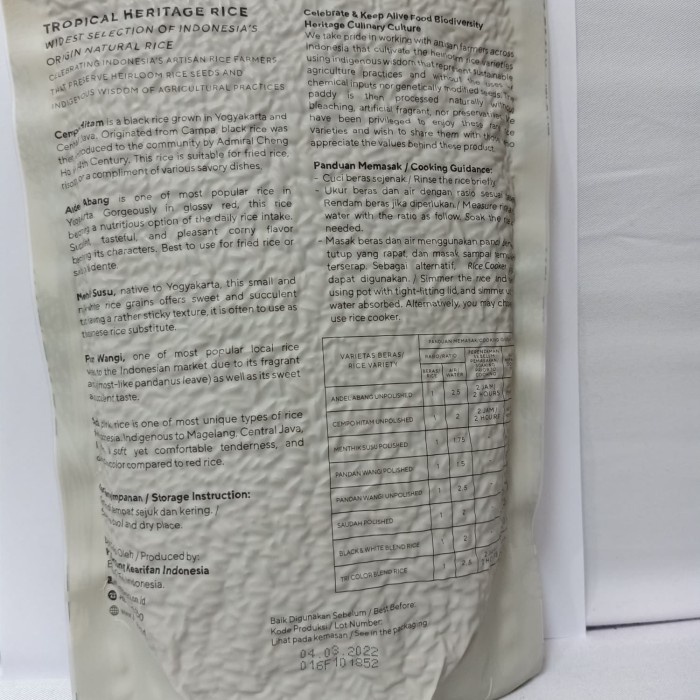 TROPICAL HERITAGE RICE
WIDEST SELECTION OF INDONESIA'S
ORIGIN NATURAL RICE
CELEBRATING INDONESIA'S ARTISAN RICE FARMERS
THAT PRESERVE HEIRLOOM RICE SEEDS AND
INDIGENOUS WISDOM OF AGRICULTURAL PRACTICES
is a black rice grown in Yogyakarta and
Originated from Campa, black rice was
to the community by Admiral Cheng
Century. This rice is suitable for fried rice,
or a compliment of various savory dishes.
Abang is one of most popular rice in
Gorgeously in glossy red, this rice
a nutritious option of the daily rice intake.
tasteful, and pleasant corny flavor
its characters. Best to use for fried rice or
Susu, native to Yogyakarta, this small and
rice grains offers sweet and succulent
a rather sticky texture, it is often to use as
rice substitute.
Wangi, one of most popular local rice
the Indonesian market due to its fragrant
(almost-like pandanus leave) as well as its sweet
taste.
rice is one of most unique types of rice
Indigenous to Magelang, Central Java,
soft yet comfortable tenderness, and
color compared to red rice.
/ Storage Instruction:
sejuk dan kering. /
and dry place.
/ Produced by:
Kearifan Indonesia
Celebrate & Keep Alive Food Biodiversity
Heritage Culinary Culture
We take pride in working with artisan farmers across
Indonesia that cultivate the heirloom rice varieties
using indigenous wisdom that represent sustainable
agriculture practices and without the
chemical inputs nor genetically modified seeds.
paddy is then processed naturally without
bleaching, artificial fragrant, nor preservative. We
have been privileged to enjoy these
varieties and wish to share them with
appreciate the values behind these product.
Panduan Memasak / Cooking Guidance:
- Cuci beras sejenak / Rinse the rice briefly
- Ukur beras dan air dengan rasio sesuai
Rendam beras jika diperlukan / Measure
water with the ratio as follow. Soak the
needed.
- Masak beras dan air menggunakan panci
tutup yang rapat, dan masak sampai
terserap. Sebagai alternatif, Rice Cooker
dapat digunakan. / Simmer the rice and
using pot with tight-fitting lid, and simmer
water absorbed. Alternatively, you may
use rice cooker.
PANDUAN MEMASAK /
VARIETAS BERAS/
RICE VARIETY
BERAS/
RICE
AIR/
WATER
ANDEL ABANG UNPOLISHED 1 2.5 2 JAM/
2 HOURS
CEMPO HITAM UNPOLISHED 1 2 2 JAM/
2 HOURS
MENTHIK SUSU POLISHED 1 1.75
PANDAN WANGI POLISHED 1 1.5
PANDAN WANGI UNPOLISHED 1 2.5
SAUDAH POLISHED 1 2
BLACK & WHITE BLEND RICE 1 2
TRI COLOR BLEND RICE 1 2.5
Baik Digunakan Sebelum / Best Before:
Kode Produksi / Lot Number:
Lihat pada kemasan / See in the packaging
04.03.2022
016F10 1852